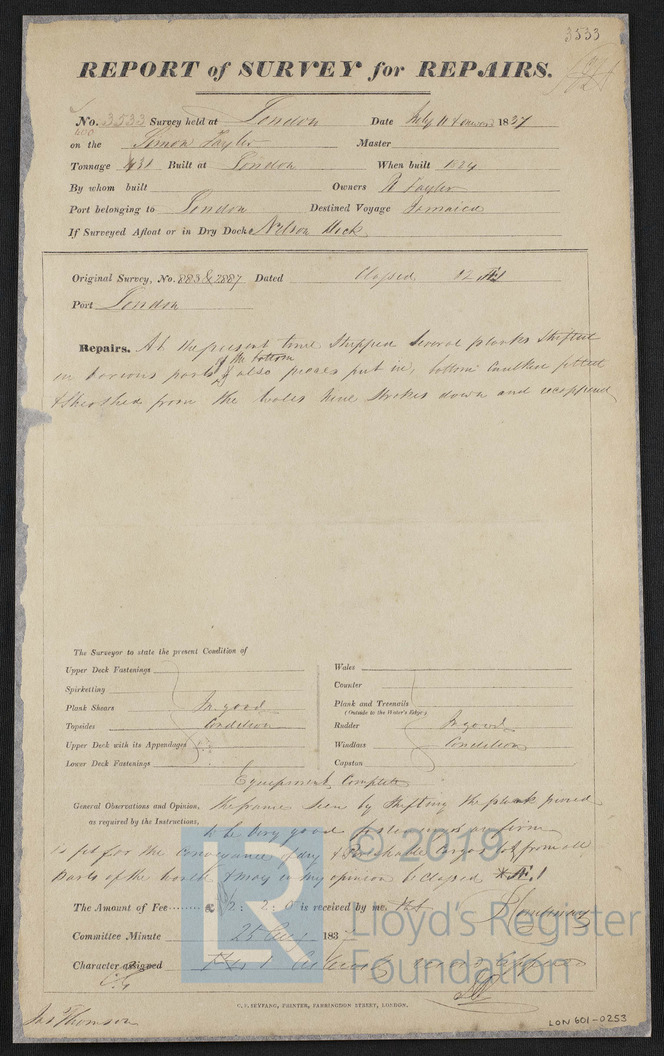 3533
REPORT of SURVEY for REPAIRS.
No. 3533 Survey held at London Date July 11 & onward 1837
on the Simon Taylor Master
Tonnage 431 Built at London When built 1824
By whom built Owners R Taylor
Port belonging to London Destined Voyage Jamaica
If Surveyed Afloat or in Dry Dock Nelson Dock
Original Survey, No. 883 & 2887 Dated Classed 12 Æ1
Port London
Repairs. At the present time Stripped Several planks Shifted
in various parts of the bottom also pieces put in, bottom Caulked felted
& Sheathed from the Wales nine Strikes down and recoppered
The Surveyor to state the present Condition of
Upper Deck Fastenings
Spirketting
Plank Shears In good
Topsides Condition
Upper Deck with its Appendages
Lower Deck Fastenings
Wales
Counter
Plank and Treenails
(Outside to the Water's Edge)
Rudder In good
Windlass Condition
Capstan
Equipment Complete
General Observations and Opinion, the frame seen by Shifting the plank proved
as required by the Instructions, to be Very good fastenings firm
is fit for the Conveyance of dry & Perishable Cargos to & from all
parts of the World & may in my opinion be Classed *Æ1
The Amount of Fee £ 2: 2: 0 is received by me,
Committee Minute 25 Aug 1837
Character assigned
C. F. SEYFANG, PRINTER, FARRINGDON STREET, LONDON.
Jas Thomson
LON 601-0253
© 2019
Lloyd's Register
Foundation
LR